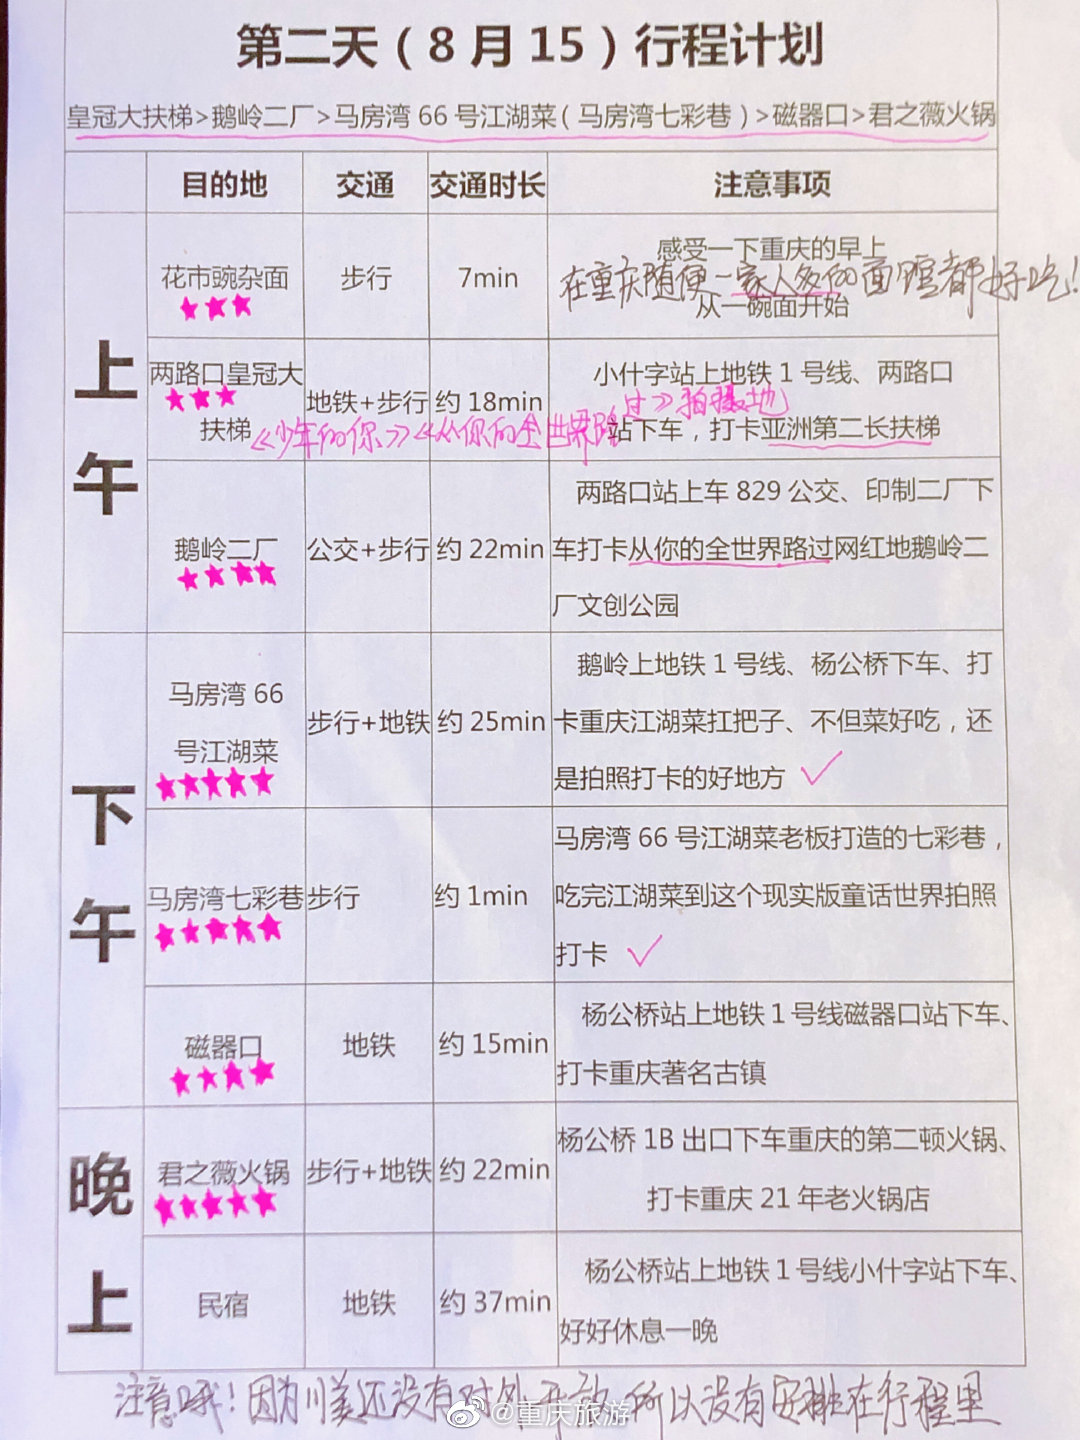 第二天（8月15）行程计划
皇冠大扶梯>鹅岭二厂>马房湾66号江湖菜（马房湾七彩巷）>磁器口>君之薇火锅
目的地 交通 交通时长 注意事项
上午
花市豌杂面 步行 7min
感受一下重庆的早上
在重庆随便一家人多的面馆都好吃！
从一碗面开始
两路口皇冠大
扶梯
地铁+步行 约18min
小什字站上地铁1号线、两路口
站下车，打卡亚洲第二长扶梯
《少年的你》《从你的全世界路过》拍摄地
鹅岭二厂 公交+步行 约22min
两路口站上车829公交、印制二厂下
车打卡从你的全世界路过网红地鹅岭二
厂文创公园
下午
马房湾66
号江湖菜
步行+地铁 约25min
鹅岭上地铁1号线、杨公桥下车、打
卡重庆江湖菜扛把子、不但菜好吃，还
是拍照打卡的好地方
马房湾七彩巷 步行 约1min
马房湾66号江湖菜老板打造的七彩巷，
吃完江湖菜到这个现实版童话世界拍照
打卡
磁器口 地铁 约15min
杨公桥站上地铁1号线磁器口站下车、
打卡重庆著名古镇
晚上
君之薇火锅 步行+地铁 约22min
杨公桥1B出口下车重庆的第二顿火锅、
打卡重庆21年老火锅店
民宿 地铁 约37min
杨公桥站上地铁1号线小什字站下车、
好好休息一晚
注意哦！因为川美还没有对外开放，所以没有安排在行程里
@重庆旅游